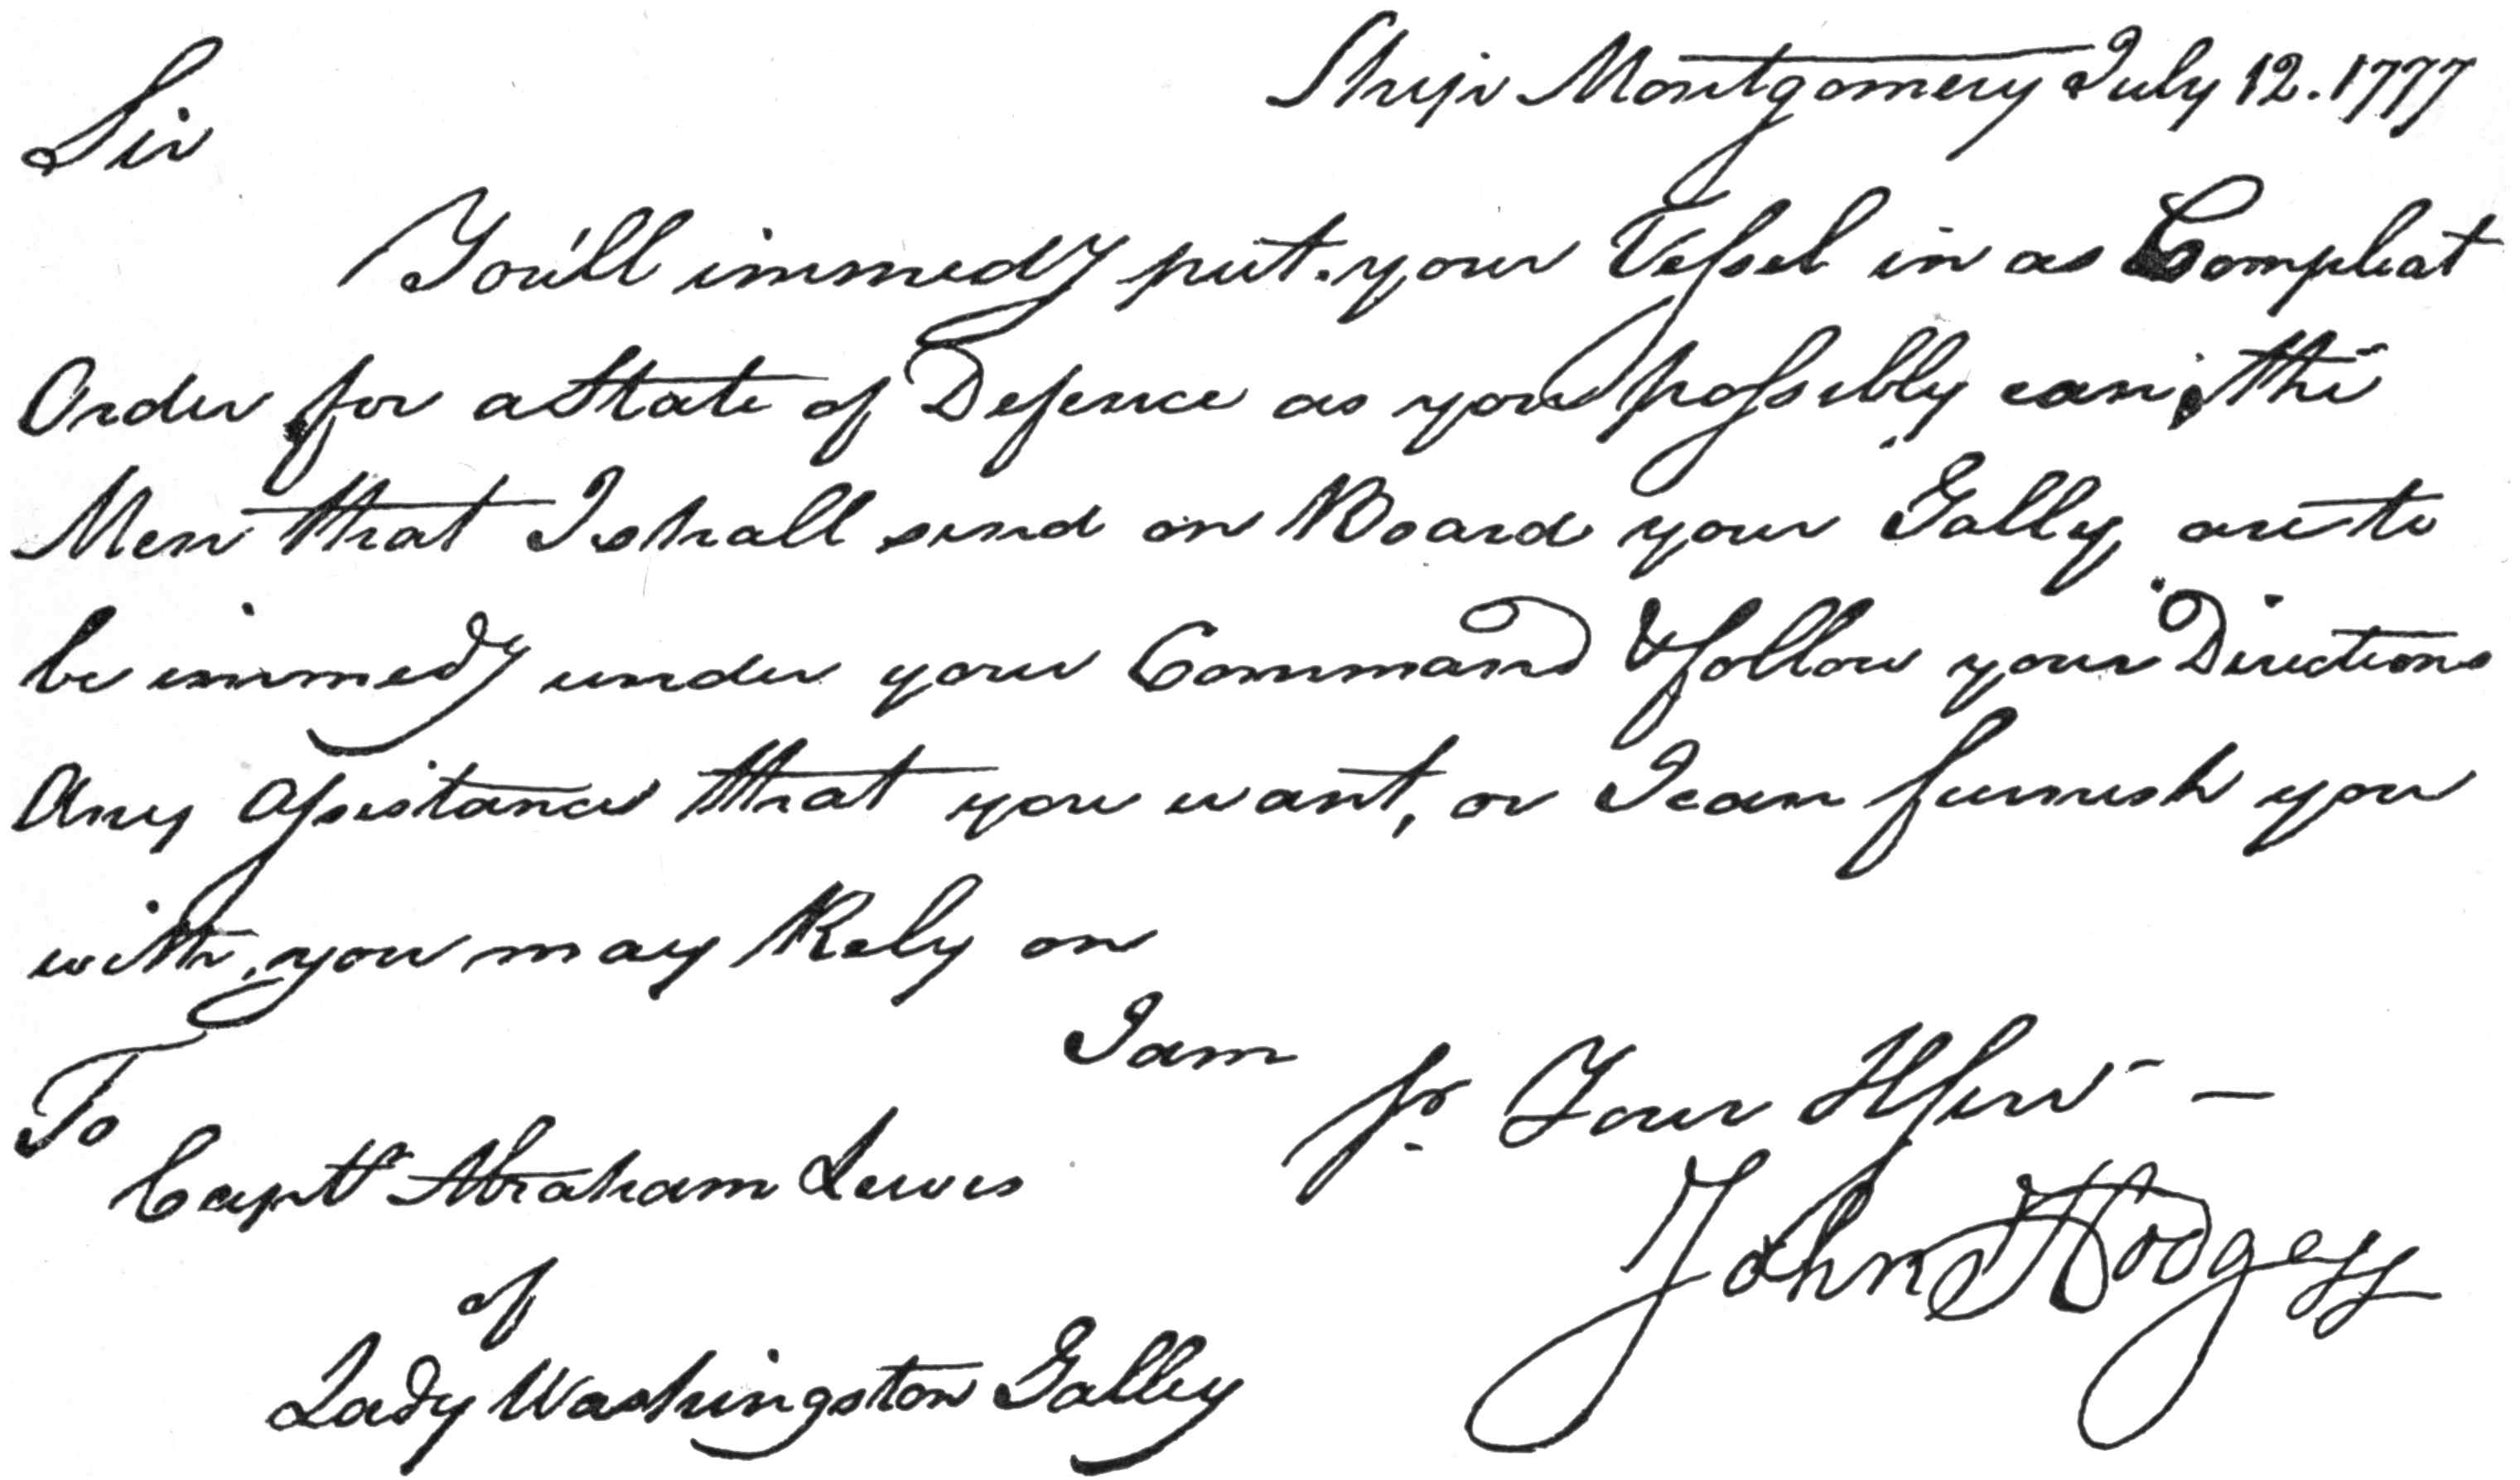 Ship Montgomery July 12. 1777
Sir
You'll immedy put your Vessel in as Compleat
Order for a State of Defence as you possibly can, the
Men that I shall send on Board your Gally are to
be immedy under your Command & follow your Directions
Any Assistance that you want, or I can furnish you
with, you may Rely on
I am
Sr Your HServt —
To
Capt Abraham Lewis
John Hodgess
of
Lady Washington Galley